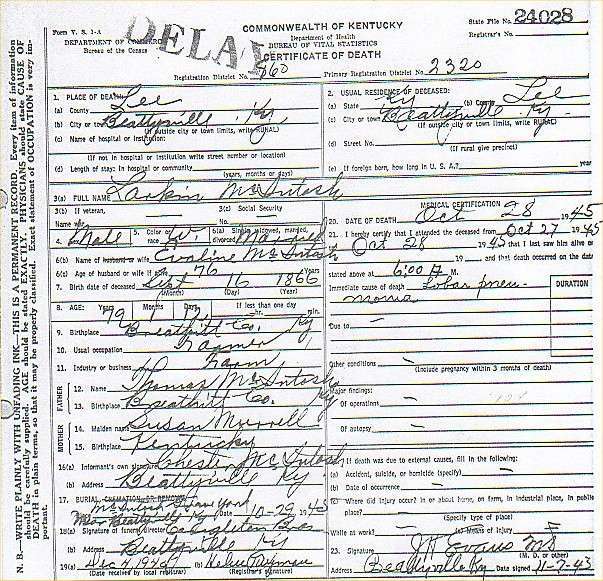 Form V. S. 1-A
DEPARTMENT OF COMMERCE
Bureau of the Census
DELAY
COMMONWEALTH OF KENTUCKY
Department of Health
BUREAU OF VITAL STATISTICS
CERTIFICATE OF DEATH
State File No. 24028
Registrar's No.
Registration District No. 860
Primary Registration District No. 2320
1. PLACE OF DEATH:
(a) County Lee
(b) City or town Beattyville Ky
(If outside city or town limits, write RURAL)
(c) Name of hospital or institution:
(If not in hospital or institution write street number or location)
(d) Length of stay: In hospital or community
(years, months or days)
2. USUAL RESIDENCE OF DECEASED:
(a) State Ky (b) County Lee
(c) City or town Beattyville Ky.
(If outside city or town limits, write RURAL)
(d) Street No.
(If rural give precinct)
(e) If foreign born, how long in U. S. A.? years
3(a) FULL NAME Larkin McIntosh
3(b) If veteran, name war
3(c) Social Security No.
4. Sex Male 5. Color or race W. 6(a) Single, widowed, married, divorced Married
6(b) Name of husband or wife Evaline McIntosh
6(c) Age of husband or wife if alive 76 Years
7. Birth date of deceased Sept 16 1866
(Month) (Day) (Year)
8. AGE: Years 79 Months 1 Days 12 If less than one day
hr. min.
9. Birthplace Breathitt Co. Ky
10. Usual occupation Farmer
11. Industry or business Farm
FATHER
12. Name Thomas McIntosh
13. Birthplace Breathitt Co. Ky
MOTHER
14. Maiden name Susan Murrell
15. Birthplace Kentucky
16(a) Informant's own signature Chester McIntosh
(b) Address Beattyville Ky
17. BURIAL, CREMATION OR REMOVAL
McIntosh Graveyard
Near Beattyville Ky Date 10-29, 1945
18(a) Signature of funeral director C. Congleton Bros
(b) Address Beattyville Ky
19. (a) Dec 7, 1945 (b)
(Date received by local registrar) (Registrar's signature)
MEDICAL CERTIFICATION
20. DATE OF DEATH Oct 28 1945
21. I hereby certify that I attended the deceased from Oct 27 1945
Oct 28 1945 that I last saw him alive on
19 , and that death occurred on the date
stated above at 6:00 A M.
Immediate cause of death Lobar pneu-
monia
DURATION
Due to
Other conditions
(Include pregnancy within 3 months of death)
Major findings:
Of operations
Of autopsy
22. If death was due to external causes, fill in the following:
(a) Accident, suicide, or homicide (specify)
(b) Date of occurrence
(c) Where did injury occur? In or about home, on farm, in industrial place, in public place?
(Specify type of place)
While at work? (e) Means of injury
23. Signature J H Evans MD
(M. D. or other)
Address Beattyville Ky Date signed 11-7-45
N. B.—WRITE PLAINLY WITH UNFADING INK—THIS IS A PERMANENT RECORD. Every item of information
should be carefully supplied. AGE should be stated EXACTLY. PHYSICIANS should state CAUSE OF
DEATH in plain terms, so that it may be properly classified. Exact statement of OCCUPATION is very im-
portant.